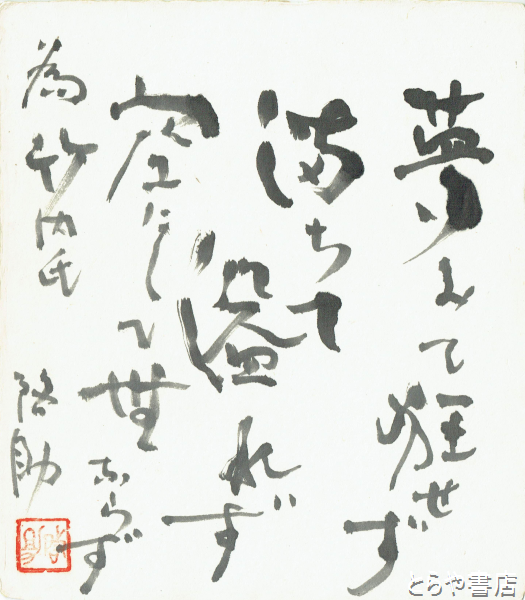 夢みて狂せず
満ちて溢れず
空にして無ならず
為竹内氏
啓助
とらや書店